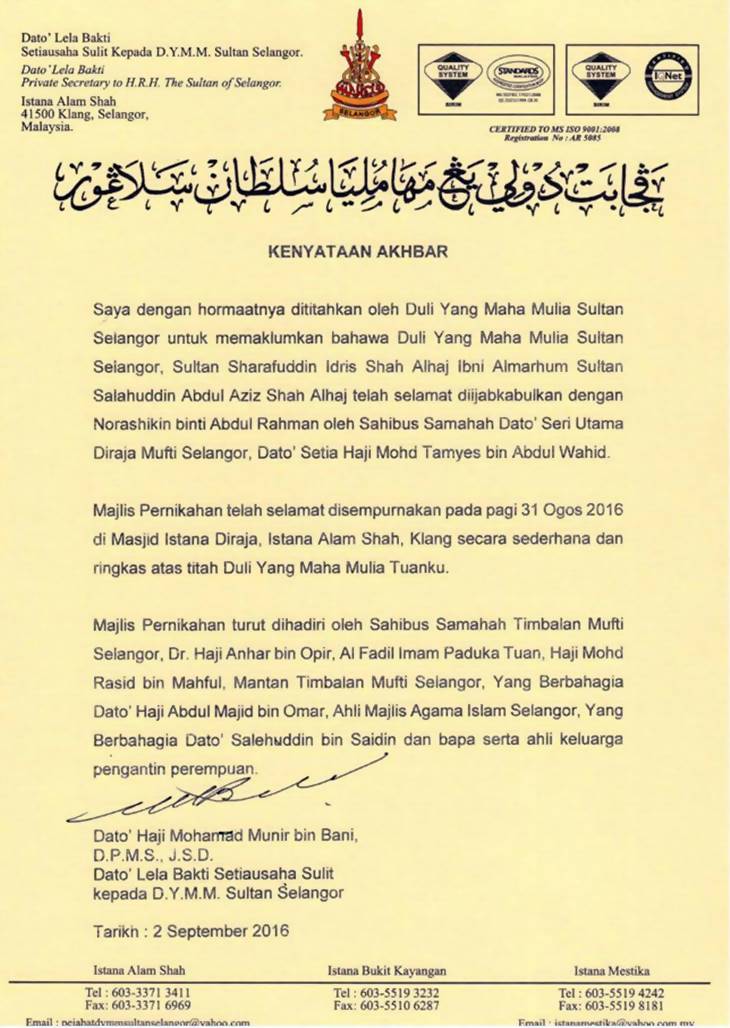 Dato' Lela Bakti
Setiausaha Sulit Kepada D.Y.M.M. Sultan Selangor.
Dato'Lela Bakti
Private Secretary to H.R.H. The Sultan of Selangor.
Istana Alam Shah
41500 Klang, Selangor,
Malaysia.
SELANGOR
QUALITY
SYSTEM
SIRIM
STANDARDS
QUALITY
SYSTEM
SIRIM
IQNet
CERTIFIED TO MS ISO 9001:2008
Registration No : AR 5085
ڤجابت دولي يڠ مها مليا سلطان سلاڠور
KENYATAAN AKHBAR
Saya dengan hormaatnya dititahkan oleh Duli Yang Maha Mulia Sultan
Selangor untuk memaklumkan bahawa Duli Yang Maha Mulia Sultan
Selangor, Sultan Sharafuddin Idris Shah Alhaj Ibni Almarhum Sultan
Salahuddin Abdul Aziz Shah Alhaj telah selamat diijabkabulkan dengan
Norashikin binti Abdul Rahman oleh Sahibus Samahah Dato' Seri Utama
Diraja Mufti Selangor, Dato' Setia Haji Mohd Tamyes bin Abdul Wahid.
Majlis Pernikahan telah selamat disempurnakan pada pagi 31 Ogos 2016
di Masjid Istana Diraja, Istana Alam Shah, Klang secara sederhana dan
ringkas atas titah Duli Yang Maha Mulia Tuanku.
Majlis Pernikahan turut dihadiri oleh Sahibus Samahah Timbalan Mufti
Selangor, Dr. Haji Anhar bin Opir, Al Fadil Imam Paduka Tuan, Haji Mohd
Rasid bin Mahful, Mantan Timbalan Mufti Selangor, Yang Berbahagia
Dato' Haji Abdul Majid bin Omar, Ahli Majlis Agama Islam Selangor, Yang
Berbahagia Dato' Salehuddin bin Saidin dan bapa serta ahli keluarga
pengantin perempuan.
Dato' Haji Mohamad Munir bin Bani,
D.P.M.S., J.S.D.
Dato' Lela Bakti Setiausaha Sulit
kepada D.Y.M.M. Sultan Selangor
Tarikh : 2 September 2016
Istana Alam Shah
Tel : 603-3371 3411
Fax: 603-3371 6969
Email : pejabatdymmsultanselangor@yahoo.com
Istana Bukit Kayangan
Tel : 603-5519 3232
Fax: 603-5510 6287
Istana Mestika
Tel : 603-5519 4242
Fax: 603-5519 8181
Email : istanamestika@yahoo.com.my